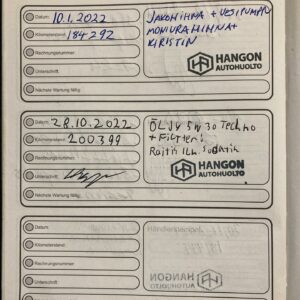 Datum: 10.1.2022
Kilometerstand: 184 292
Rechnungsnummer:
Unterschrift:
Nächste Wartung fällig:
JAKOHIHNA + VESIPUMPPU
MONIURAHIHNA +
KIRISTIN
HANGON
AUTOHUOLTO
Datum: 28.10.2022
Kilometerstand: 200399
Rechnungsnummer:
Unterschrift:
Nächste Wartung fällig:
ÖLJY 5W30 Techno
+ Filtteri
Raitis ILM. Sodatin
HANGON
AUTOHUOLTO
Datum:
Kilometerstand:
Rechnungsnummer:
Unterschrift:
HANGON
AUTOHUOLTO